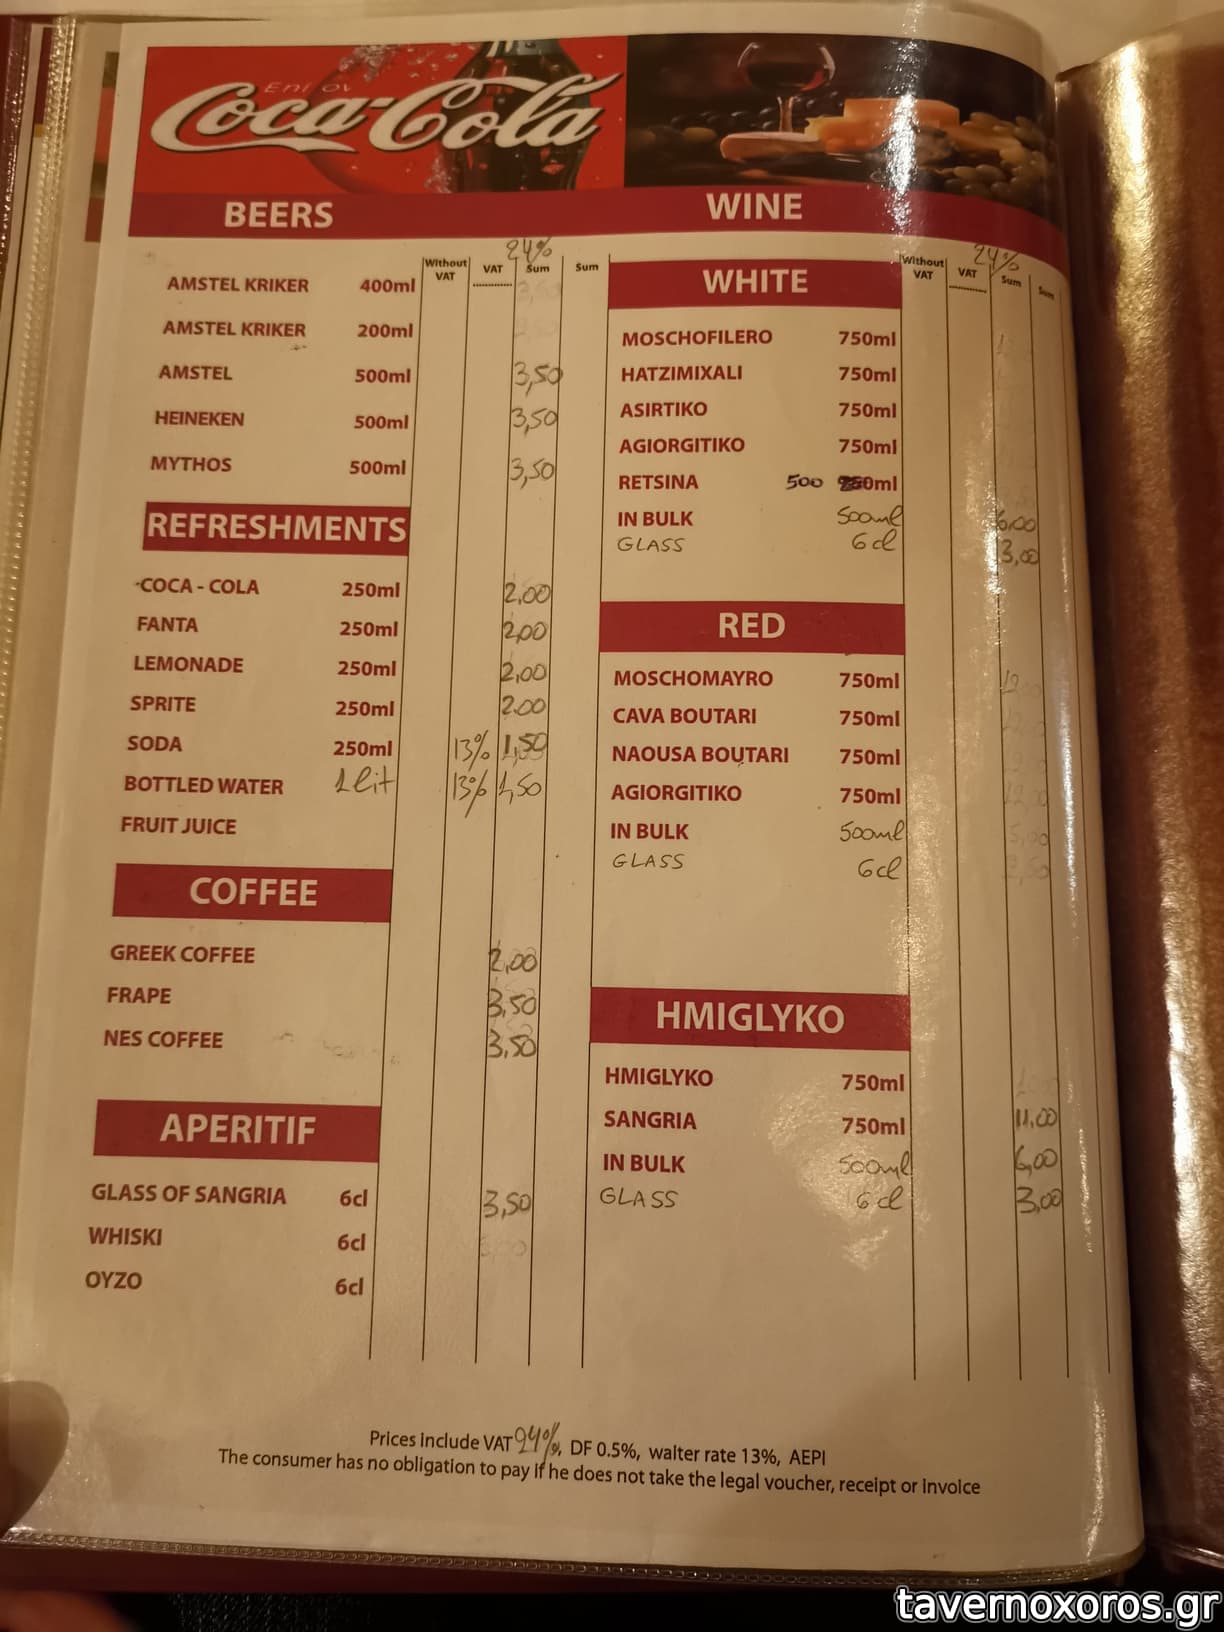 Enjoy
Coca-Cola
BEERS
24%
Without VAT VAT Sum Sum
AMSTEL KRIKER 400ml
AMSTEL KRIKER 200ml
AMSTEL 500ml 3,50
HEINEKEN 500ml 3,50
MYTHOS 500ml 3,50
REFRESHMENTS
COCA - COLA 250ml 2,00
FANTA 250ml 2,00
LEMONADE 250ml 2,00
SPRITE 250ml 2.00
SODA 250ml 13% 1,50
BOTTLED WATER 1lit 13% 1,50
FRUIT JUICE
COFFEE
GREEK COFFEE 2,00
FRAPE 3,50
NES COFFEE 3,50
APERITIF
GLASS OF SANGRIA 6cl 3,50
WHISKI 6cl
OYZO 6cl
WINE
24%
WHITE
Without VAT VAT Sum Sum
MOSCHOFILERO 750ml
HATZIMIXALI 750ml
ASIRTIKO 750ml
AGIORGITIKO 750ml
RETSINA 500 ml
IN BULK 500ml 6,00
GLASS 6cl 3,00
RED
MOSCHOMAYRO 750ml
CAVA BOUTARI 750ml
NAOUSA BOUTARI 750ml
AGIORGITIKO 750ml 12,00
IN BULK 500ml 5,00
GLASS 6cl 2,50
HMIGLYKO
HMIGLYKO 750ml
SANGRIA 750ml 11,00
IN BULK 500ml 6,00
GLASS 6cl 3,00
Prices include VAT 24%, DF 0.5%, waiter rate 13%, AEPI
The consumer has no obligation to pay if he does not take the legal voucher, receipt or invoice
tavernoxoros.gr